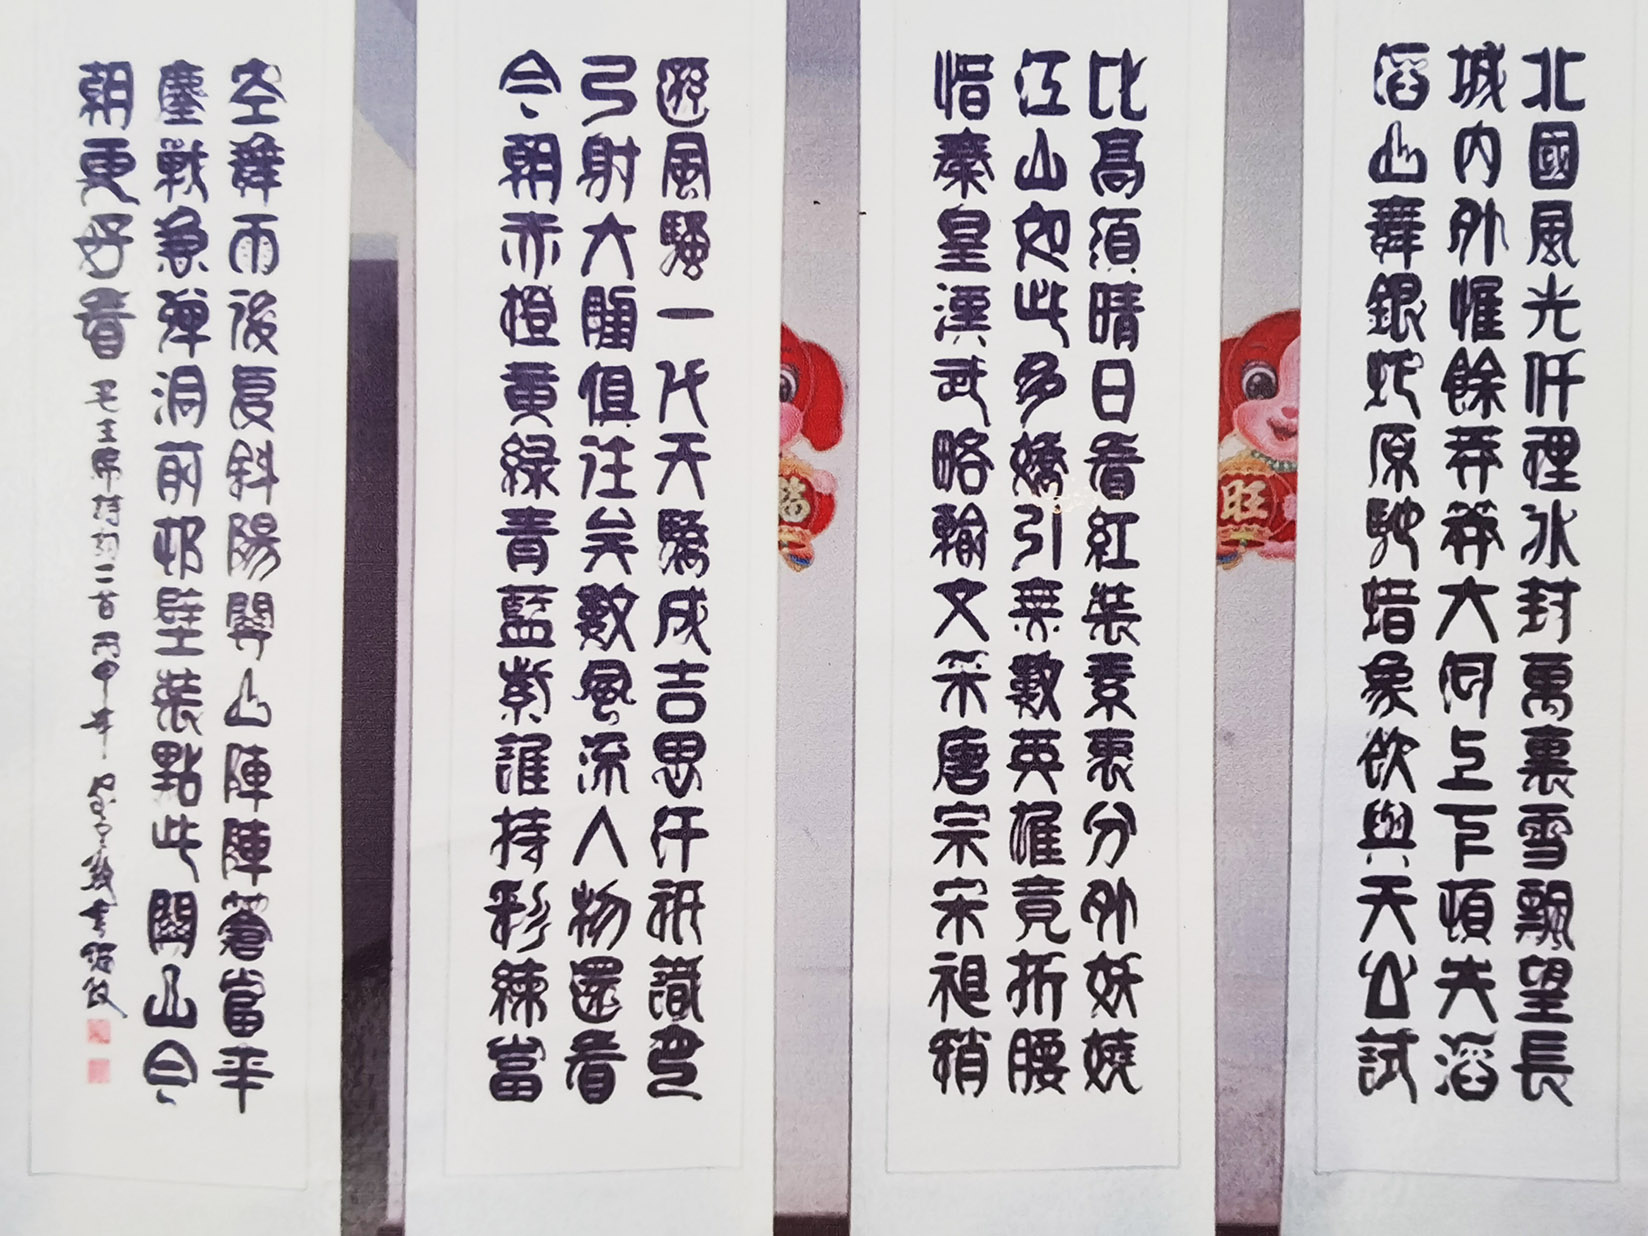 北國風光仟裡冰封萬裏雪飄望長
城内外惟餘莽莽大河上下頓失滔
滔山舞銀蛇原馳蜡象欲與天公試
比高須晴日看紅装素裹分外妖嬈
江山如此多嬌引無數英雄竟折腰
惜秦皇漢武略輸文采唐宗宋祖稍
遜風騷一代天驕成吉思汗祇識彎
弓射大雕俱往矣數風流人物還看
今朝赤橙黄綠青藍紫誰持彩練當
空舞雨後复斜陽關山陣陣蒼當年
鏖戰急彈洞前村壁装點此關山今
朝更好看
毛主席詩詞二首丙申年
福
旺